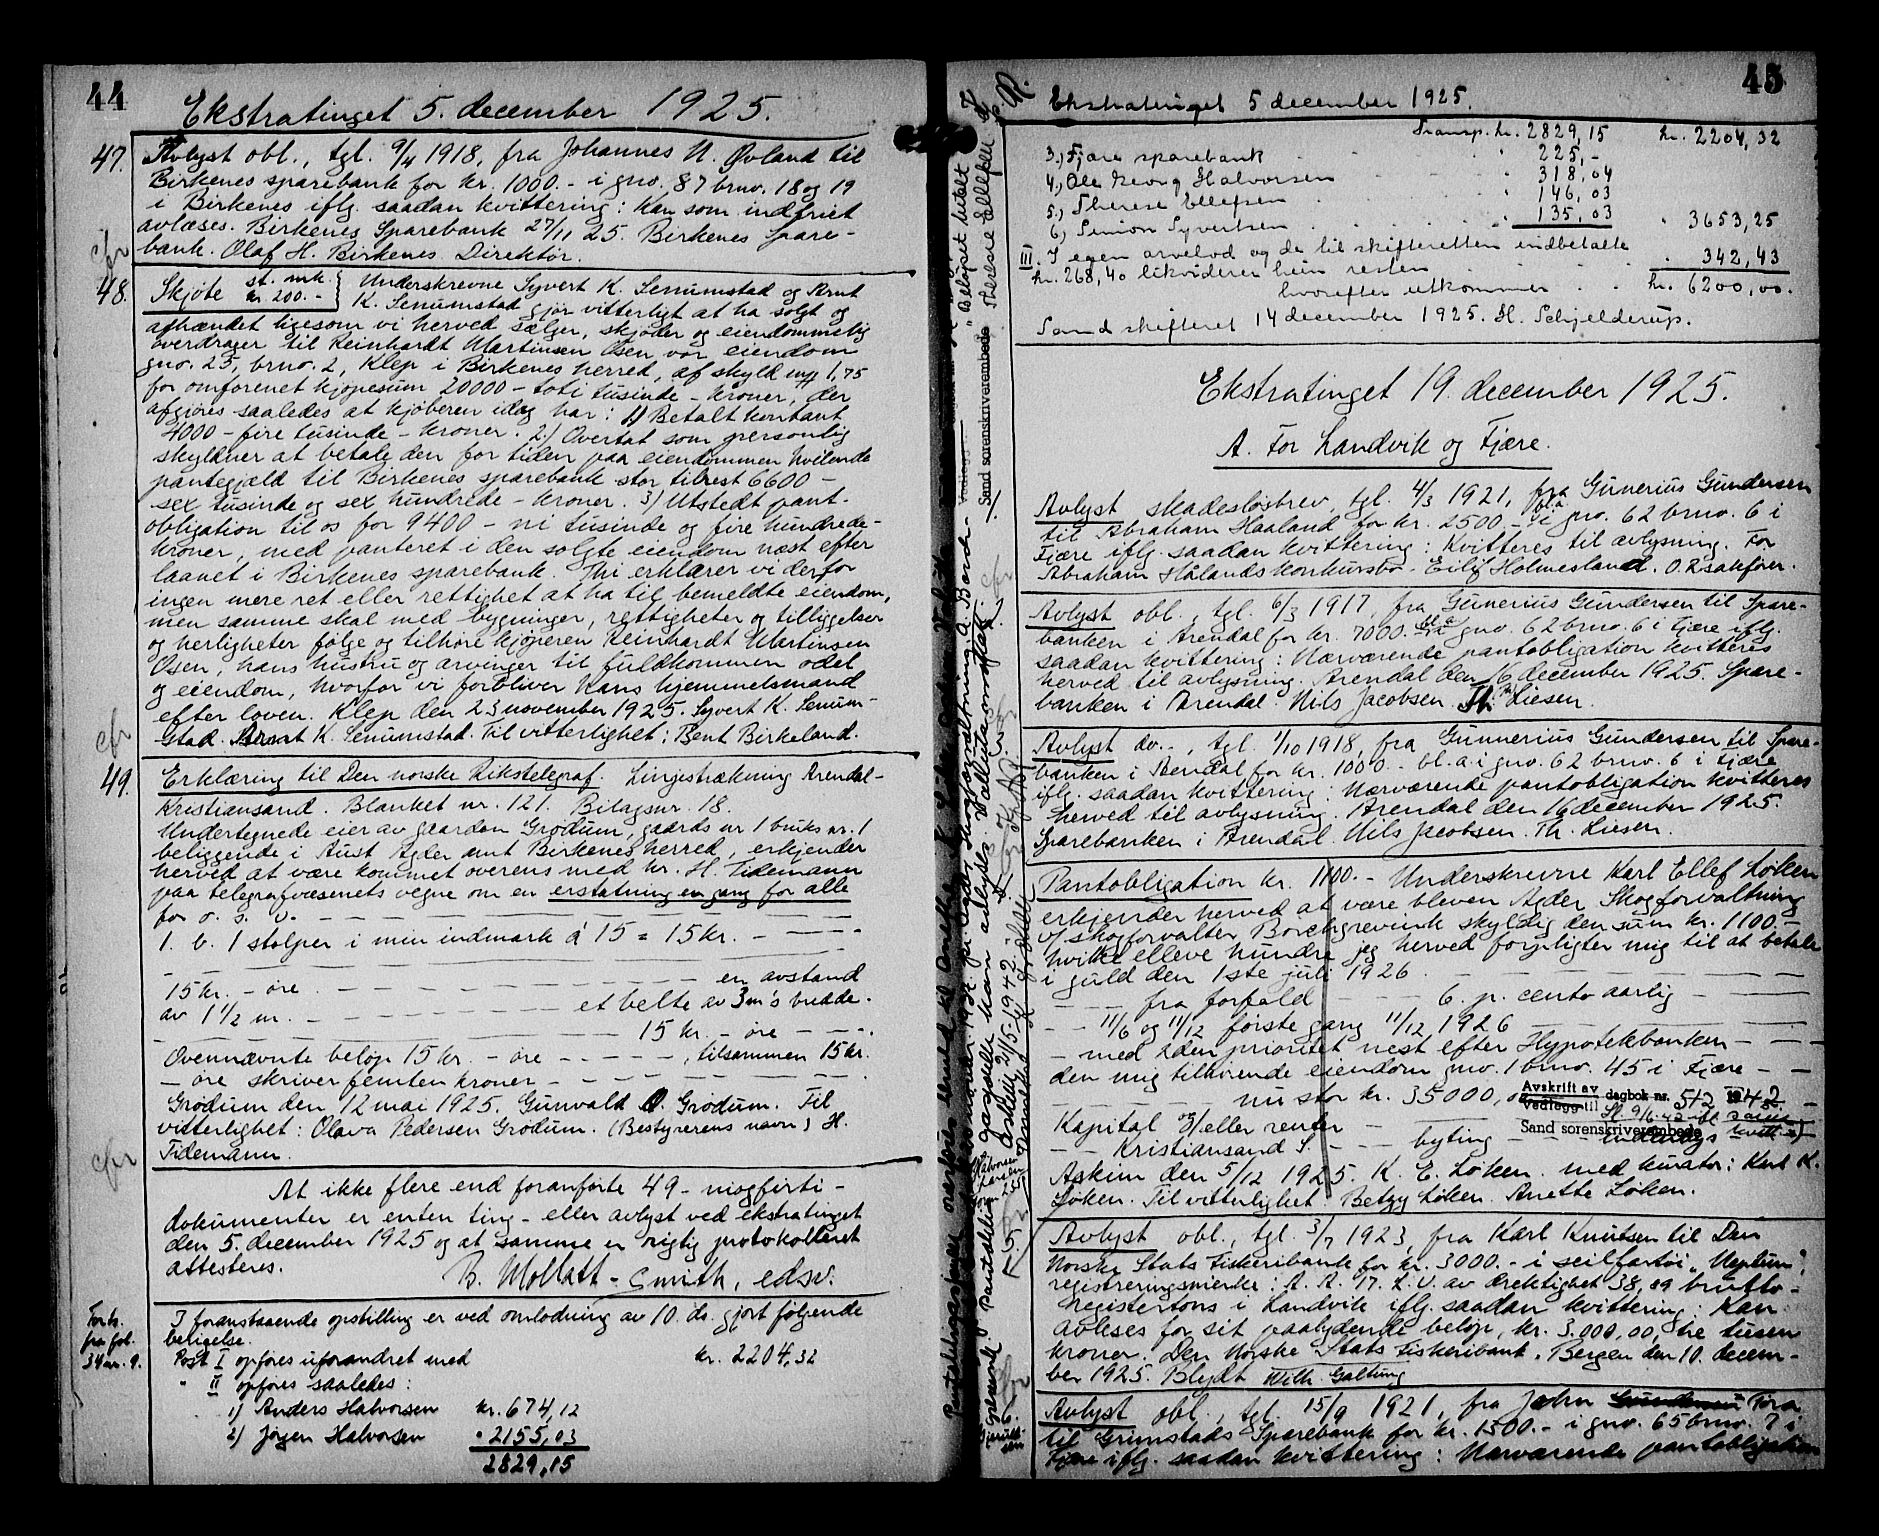 44
Ekstratinget 5. december 1925.
47. Avlyst obl., tgl. 9/4 1918, fra Johannes N. Øvland til
Birkenes sparebank for kr. 1000.- i gno. 87 brno. 18 og 19
i Birkenes iflg. saadan kvittering: Kan som indfriet
avlæses. Birkenes Sparebank 27/11 25. Birkenes Spare-
bank. Olaf H. Birkenes Direktør.
cfr
48. Skjøte st. mrk. kr. 200.- } Underskrevne Syvert K. Senumstad og Arnt
K. Senumstad gjør vitterligt at ha solgt og
afhændet ligesom vi herved sælger, skjøder og eiendommelig
overdrager til Reinhardt Martinsen Osen vor eiendom
gno. 25, brno. 2, Klep i Birkenes herred, af skyld mrk 1,75
for omforenet kjøpesum 20000 - toti tusinde - kroner, der
afgjøres saaledes at kjøberen idag har: 1) Betalt kontant
4000 - fire tusinde - kroner. 2) Overtat som personlig
skyldner at betale den for tiden paa eiendommen hvilende
pantegjæld til Birkenes sparebank stor tilrest 6600 -
sex tusinde og sex hundrede - kroner. 3) Utstedt pant-
obligation til os for 9400 - ni tusinde og fire hundrede -
kroner, med panteret i den solgte eiendom næst efter
laanet i Birkenes sparebank. Thi erklærer vi derfor
ingen mere ret eller rettighet at ha til bemeldte eiendom,
men samme skal med bygninger, rettigheter og tilliggelser
og herligheter følge og tilhøre kjøperen Reinhardt Martinsen
Osen, hans hustru og arvinger til fuldkommen odel
og eiendom, hvorfor vi forbliver hans hjemmelsmænd
efter loven. Klep den 23 november 1925. Syvert K. Senum-
stad. Arnt K. Senumstad. Til vitterlighet: Bent Birkeland.
cfr
49. Erklæring til Den norske Rikstelegraf Linjestrækning Arendal-
Kristiansand. Blanket nr. 121. Bilagsnr. 18.
Undertegnede eier av gaarden Grødum, gaards nr 1 bruks nr. 1
beliggende i Aust Agder amt Birkenes herred, erkjender
herved at være kommet overens med hr. H. Tidemann
paa telegrafvæsenets vegne om en erstatning en gang for alle
for o. s. v.
1. b. 1 stolper i min indmark á 15 = 15 kr. -
15 kr. - øre - en avstand
av 1 1/2 m. - et belte av 3 m's bredde.
15 kr - øre -
Ovennævnte beløp 15 kr. - øre - , tilsammen 15 kr.
- øre skriver femten kroner -
Grødum den 12 mai 1925. Gunvald O. Grødum. Til
vitterlighet: Olava Pedersen Grødum. (Bestyrerens navn) H.
Tidemann.
cfr
At ikke flere end foranførte 49 - niogførti -
dokumenter er enten ting- eller avlyst ved ekstratinget
den 5. december 1925 og at samme er rigtig protokolleret
attesteres.
B. Mollatt-Smith, edsv.
Forts. fra fol. 34 nr. 9.
I foranstaaende opstilling er ved omlodning av 10. ds. gjort følgende
berigelse.
Post I opføres uforandret med kr. 2204,32
" II opføres saaledes:
1) Anders Halvorsen kr. 674,12
2) Jørgen Halvorsen " 2155,03
2829,15
45
Ekstratinget 5 december 1925.
Transp. kr. 2829,15 kr. 2204,32
3.) Fjære sparebank " 225,-
4.) Ole Georg Halvorsen " 318,04
5.) Therese Ellefsen " 146,03
6.) Simon Syvertsen " 135,03 " 3653,25
III. I egen arvelod og de til skifteretten indbetalte
kr. 268,40 likviderer hun resten " 342,43
hvorefter utkommer kr. 6200,00.
Sand skifteret 14 december 1925. H. Schjelderup.
Ekstratinget 19. december 1925.
A. For Landvik og Fjære.
Avlyst skadesløsbrev, tgl. 4/3 1921, fra Gunerius Gundersen
til Abraham Haaland for kr. 2500.- bl.a. i gno. 62 brno. 6 i
Fjære iflg. saadan kvittering: Kvitteres til avlysning. For
Abraham Hålands konkursbo - Eilif Holmesland. O.R.sakfører.
Avlyst obl., tgl. 6/3 1917, fra Gunerius Gundersen til Spare-
banken i Arendal for kr. 7000.- bl. a. i gno. 62 brno. 6 i Fjære iflg.
saadan kvittering: Nærværende pantobligation kvitteres
herved til avlysning. Arendal den 16 december 1925. Spare-
banken i Arendal. Nils Jacobsen. Th. Liesen.
Avlyst do.-, tgl. 1/10 1918, fra Gunnerius Gundersen til Spare-
banken i Arendal for kr. 1000.- bl. a. i gno. 62 brno. 6 i Fjære
iflg. saadan kvittering: Nærværende pantobligation kvitteres
herved til avlysning. Arendal den 16 december 1925.
Sparebanken i Arendal. Nils Jacobsen. Th. Liesen.
Pantobligation kr. 1100.- Underskrevne Karl Ellef Løken
erkjender herved at være bleven Agder Skogforvaltning
v/ skogforvalter Borchgrevink skyldig den sum kr. 1100.-
hvilke elleve hundre jeg herved forpligter mig til at betale
i guld den 1ste juli 1926.
- fra forfald - 6. p. cento aarlig -
- 11/6 og 11/12 første gang 11/12 1926
- med 2den prioritet nest efter Hypotekbanken -
den mig tilhørende eiendom gno. 1 brno. 45 i Fjære -
nu stor kr. 35000,0
Avskrift av dagbok nr. 542 1942
Vedlegg til
Sand sorenskriverembede
Kapital og/eller renter
- Kristiansand S. - byting -
Askim den 5/12 1925. K. E. Løken. med kurator: Karl K.
Løken. Til vitterlighet. Betzy Løken. Anette Løken.
Avlyst obl., tgl. 3/7 1923, fra Karl Knutsen til Den
Norske Stats Fiskeribank for kr. 3000.- i seilfartøi "Neptun",
registreringsmerke: A. A. 17. L. V. av drektighet 38,89 brutto-
registertons i Landvik iflg. saadan kvittering: Kan
avleses for sit paalydende beløp, kr. 3.000,00, tre tusen
kroner. Den Norske Stats Fiskeribank. Bergen den 10. decem-
ber 1925. Blydt Wilh. Galtung
Avlyst obl., tgl. 15/9 1921, fra John Tora
til Grimstads Sparebank for kr. 1500.- i gno. 65 brno. 7 i
Fjære iflg. saadan kvittering: Nærværende pantobligation
Sand sorenskriverembede